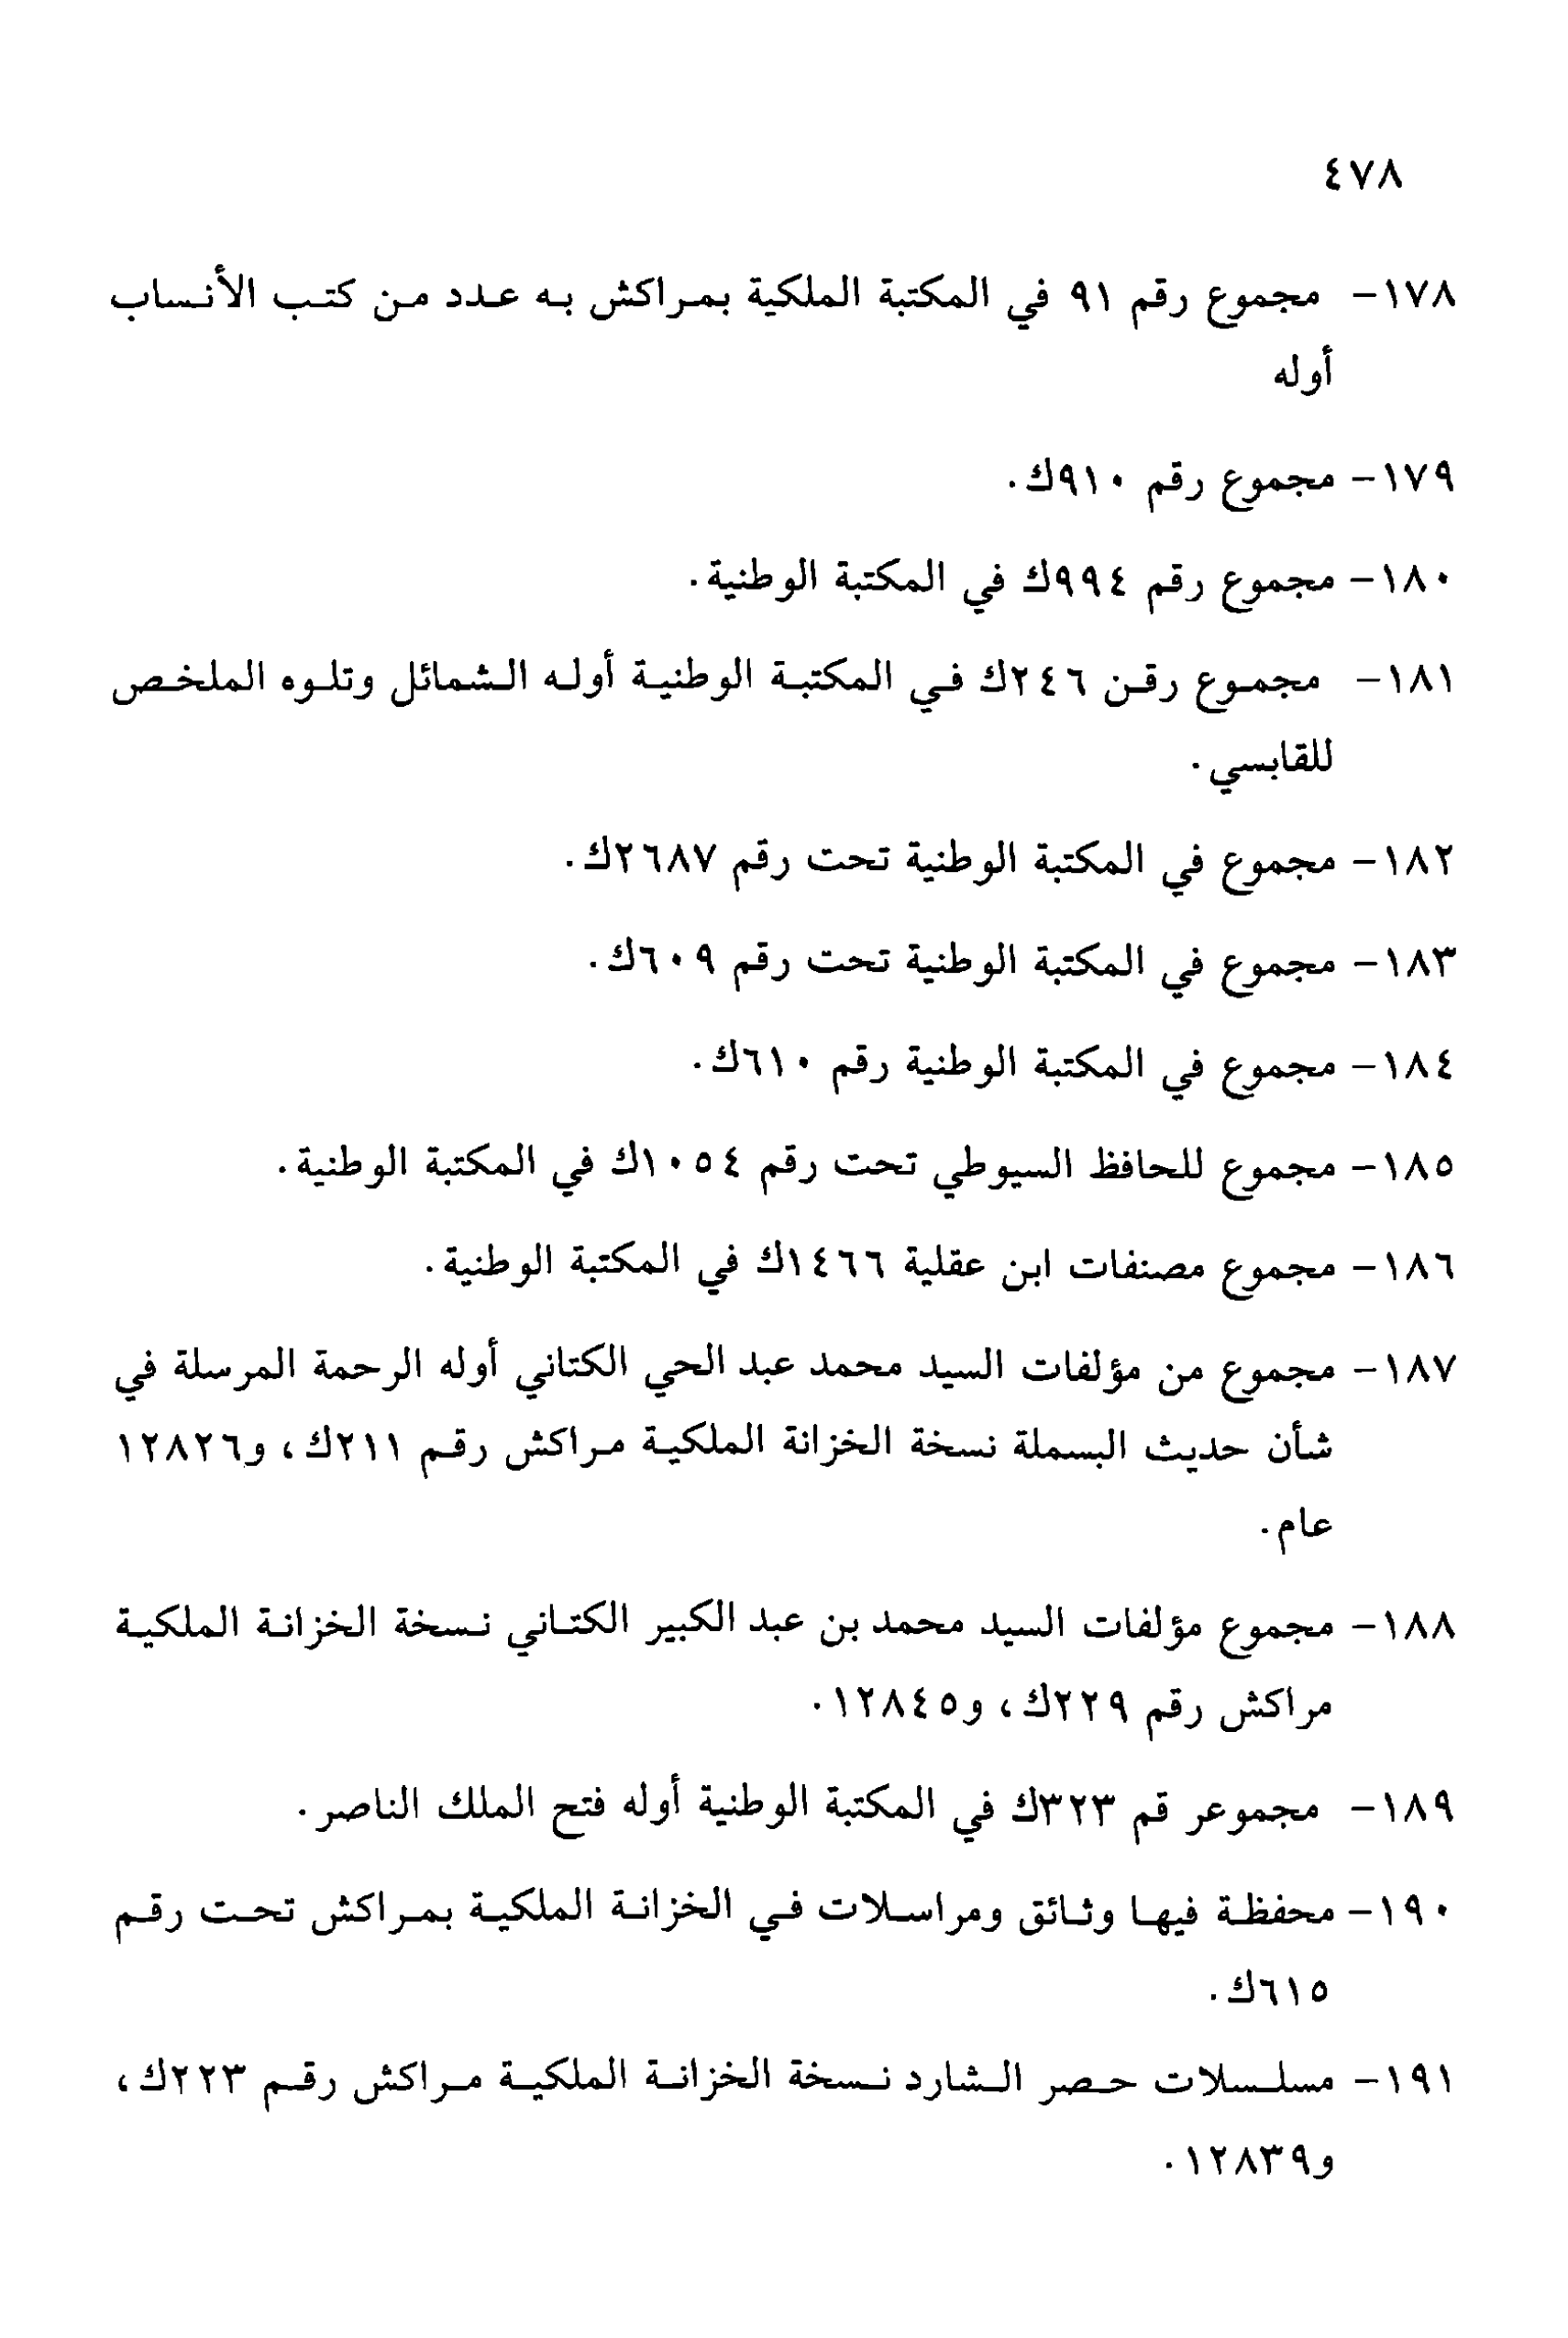 ٤٧٨
١٧٨- مجموع رقم ٩١ في المكتبة الملكية بمراكش به عدد من كتب الأنساب
أوله
١٧٩- مجموع رقم ٩١٠ك.
١٨٠- مجموع رقم ٩٩٤ك في المكتبة الوطنية.
١٨١- مجموع رقن ٢٤٦ك في المكتبة الوطنية أوله الشمائل وتلوه الملخص
للقابسي.
١٨٢- مجموع في المكتبة الوطنية تحت رقم ٢٦٨٧ك.
١٨٣- مجموع في المكتبة الوطنية تحت رقم ٦٠٩ك.
١٨٤- مجموع في المكتبة الوطنية رقم ٦١٠ك.
١٨٥- مجموع للحافظ السيوطي تحت رقم ١٠٥٤ك في المكتبة الوطنية.
١٨٦- مجموع مصنفات ابن عقلية ١٤٦٦ك في المكتبة الوطنية.
١٨٧- مجموع من مؤلفات السيد محمد عبد الحي الكتاني أوله الرحمة المرسلة في
شأن حديث البسملة نسخة الخزانة الملكية مراكش رقم ٢١١ك، و١٢٨٢٦
عام.
١٨٨- مجموع مؤلفات السيد محمد بن عبد الكبير الكتاني نسخة الخزانة الملكية
مراكش رقم ٢٢٩ك، و١٢٨٤٥.
١٨٩- مجموعر قم ٣٢٣ك في المكتبة الوطنية أوله فتح الملك الناصر.
١٩٠- محفظة فيها وثائق ومراسلات في الخزانة الملكية بمراكش تحت رقم
٦١٥ك.
١٩١- مسلسلات حصر الشارد نسخة الخزانة الملكية مراكش رقم ٢٢٣ك،
و١٢٨٣٩.